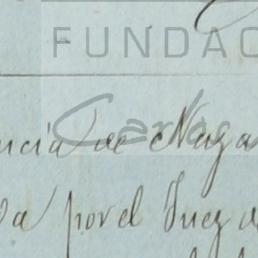 FUNDAC
Carlos
ncia de Naga
da por el Juez d